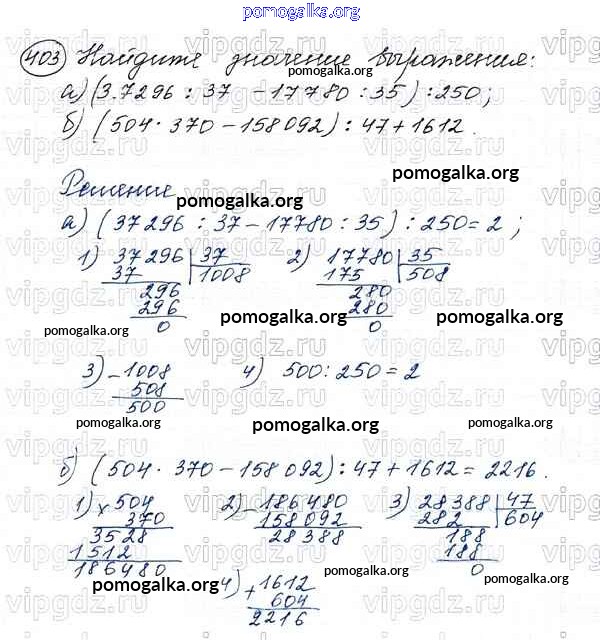 pomogalka.org
403 Найдите значение выражения:
pomogalka.org
а) (3.7296 : 37 - 17780 : 35) : 250;
б) (504 · 370 - 158092) : 47 + 1612.
pomogalka.org
Решение
pomogalka.org
а) (37296 : 37 - 17780 : 35) : 250 = 2;
1) 37296 37
37 1008
296
296
0
2) 17780 35
175 508
280
280
0
pomogalka.org pomogalka.org pomogalka.org
3) - 1008
508
500
4) 500 : 250 = 2
pomogalka.org
б) (504 · 370 - 158092) : 47 + 1612 = 2216.
1) × 504
370
3528
1512
186480
2) - 186480
158092
28388
3) 28388 47
282 604
188
188
0
pomogalka.org
4) + 1612
604
2216
pomogalka.org
vipgdz.ru vipgdz.ru vipgdz.ru